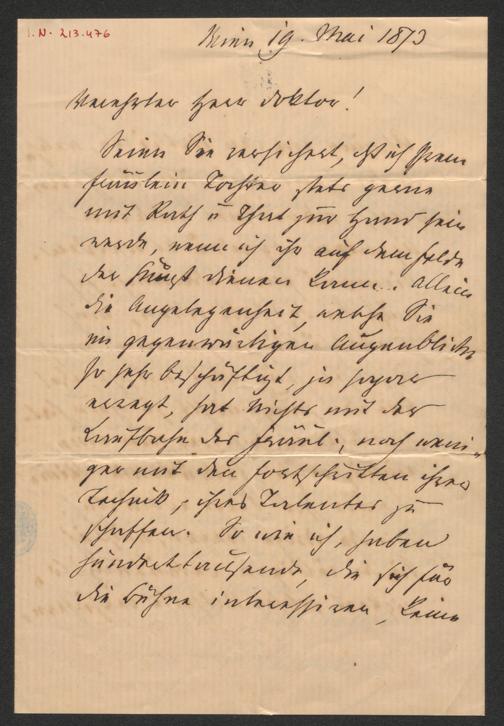 I.N. 213.476
Wien 19. Mai 1873
Verehrter Herr Doktor!
Seien Sie versichert, daß ich Ihrem
Fräulein Tochter stets gerne
mit Rath u That zur Hand sein
werde, wenn ich ihr auf dem Felde
der Kunst dienen kann. Allein
die Angelegenheit, welche Sie
im gegenwärtigen Augenblicke
so sehr beschäftigt, ja sogar
erregt, hat Nichts mit der
Laufbahn des Fräul:, noch weni-
ger mit den Fortschritten ihrer
Technik, ihres Talentes zu
schaffen. So wie ich, haben
Hunderttausende, die sich für
die Bühne interessiren, keine